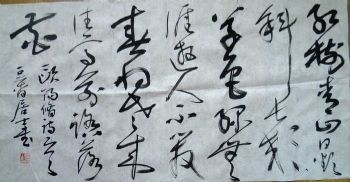 紅樹青山日欲
斜長郊
草色綠無
涯遊人不管
春將老來
往亭前踏落
花
歐陽修詩一首
居士書